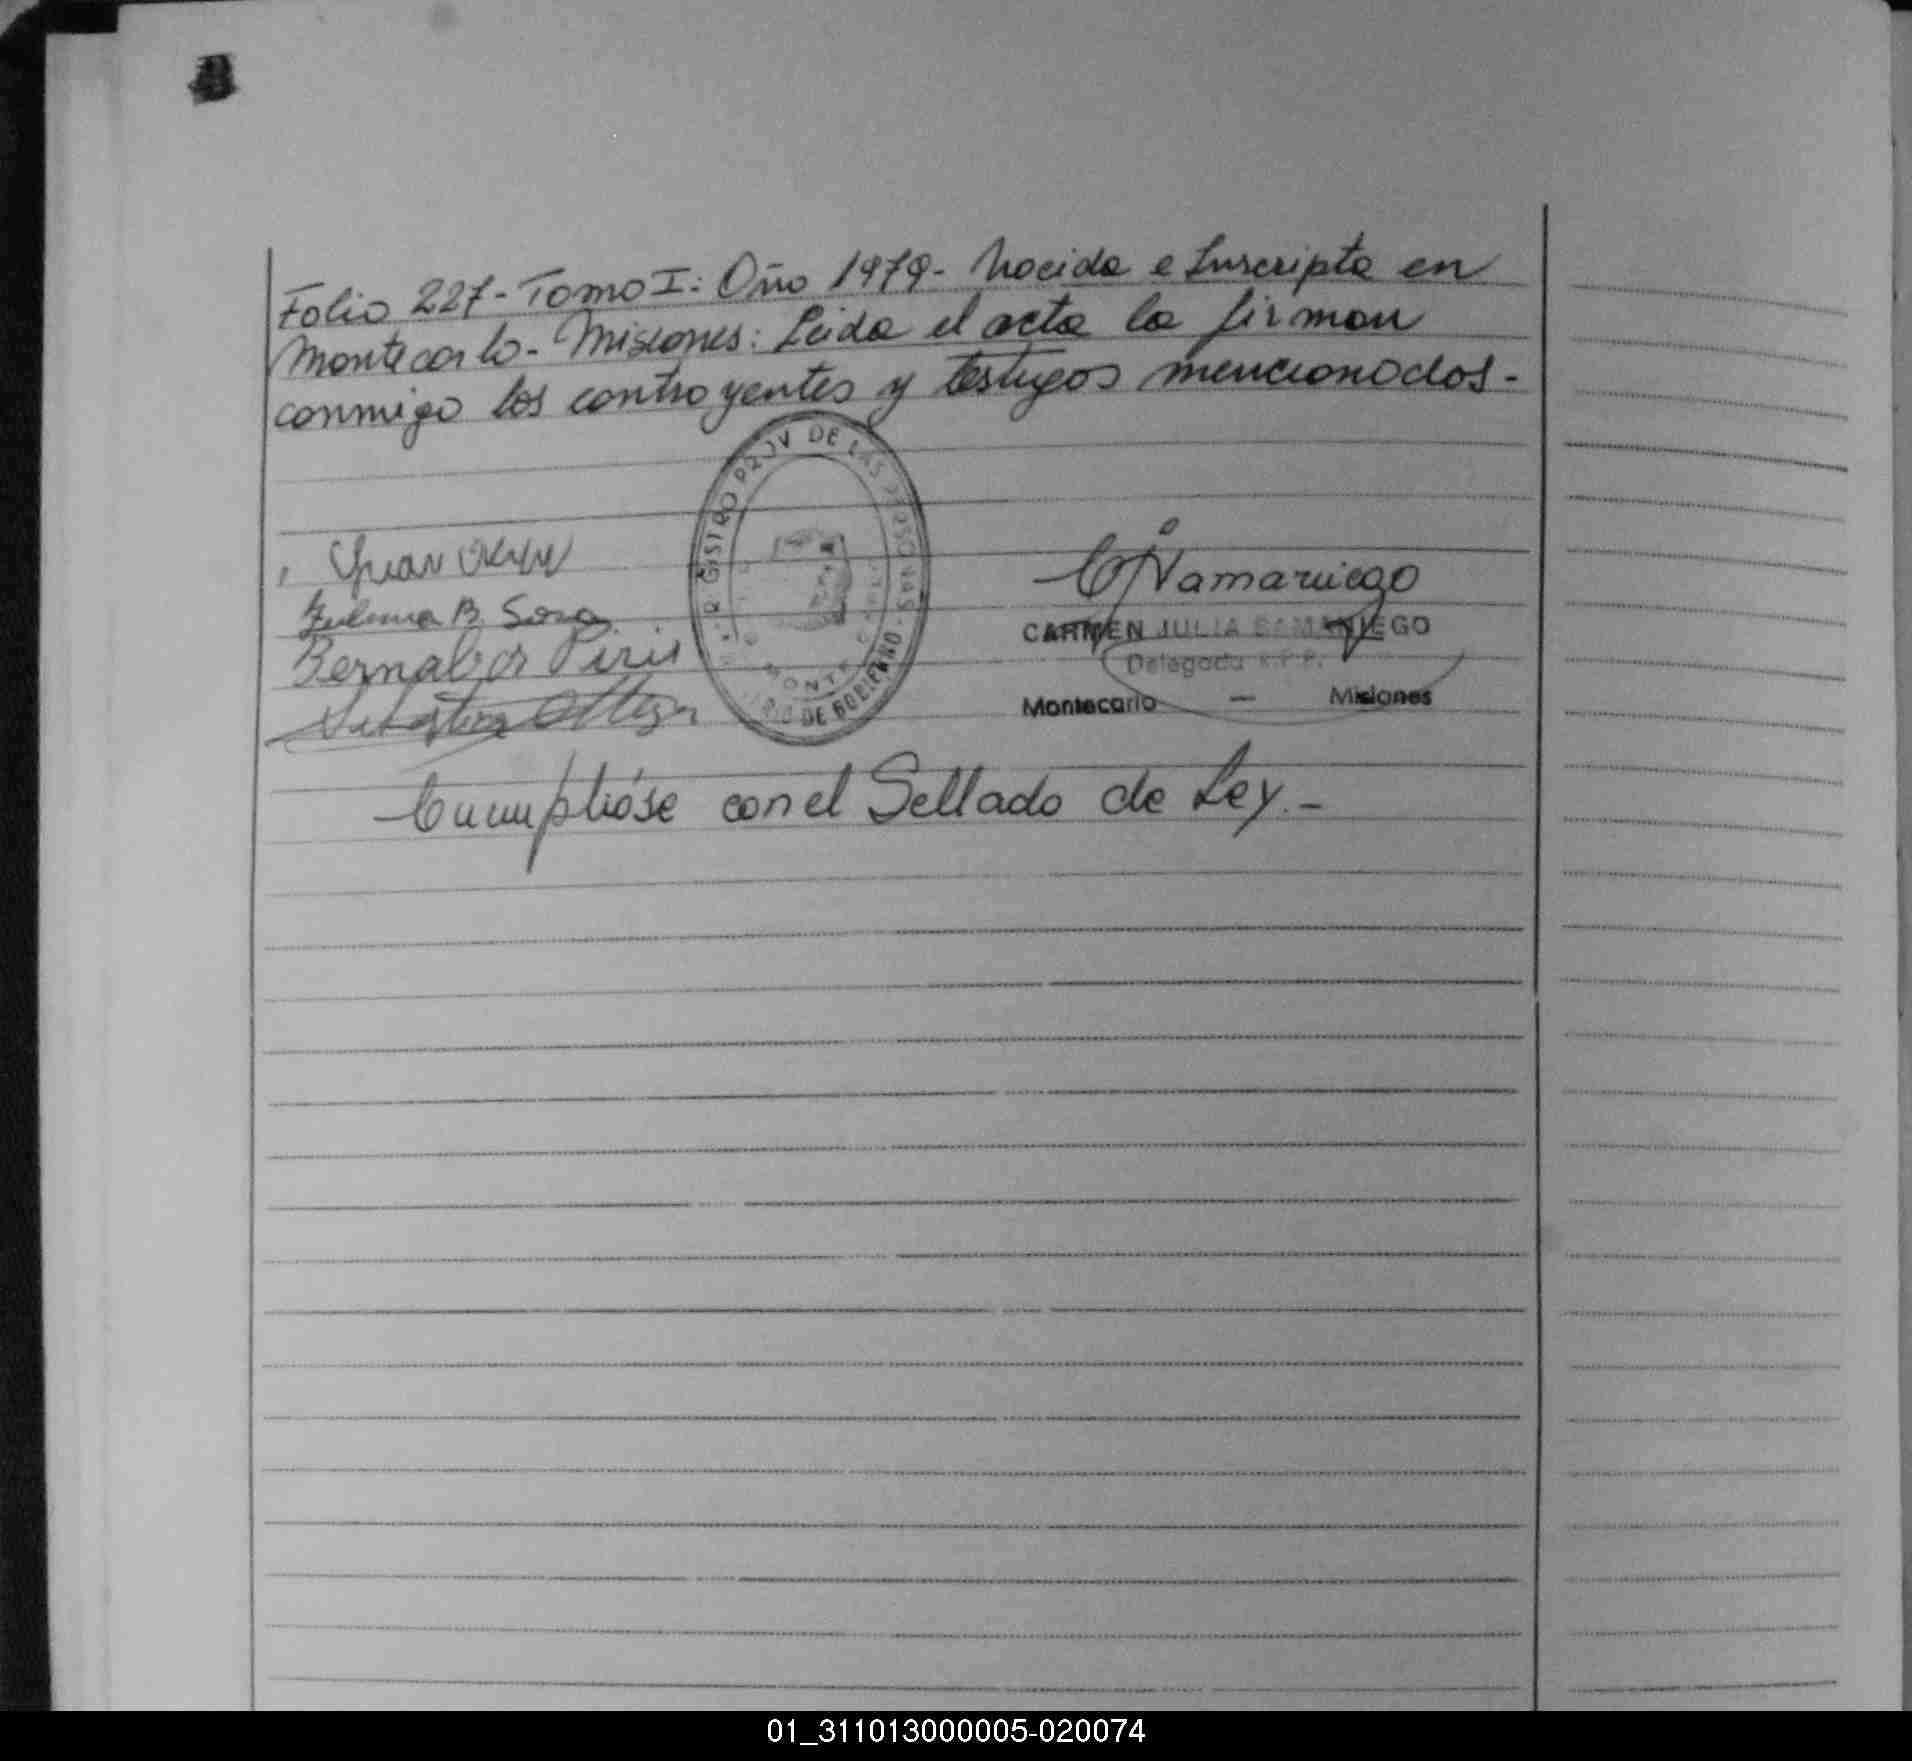 Folio 227- Tomo I: Año 1979- Nacida e Inscripta en
Montecarlo- Misiones: Leida el acta la firman
conmigo los contrayentes y testigos mencionados-
REGISTRO PROV DE LAS PERSONAS
MONTE
DE GOBIERNO
Juan
Zulema B. Sosa
Bernabé Piris
CJSamaniego
CARMEN JULIA SAMANIEGO
Delegada R.P.P.
Montecarlo — Misiones
Cumplióse con el Sellado de Ley.-
01_311013000005-020074